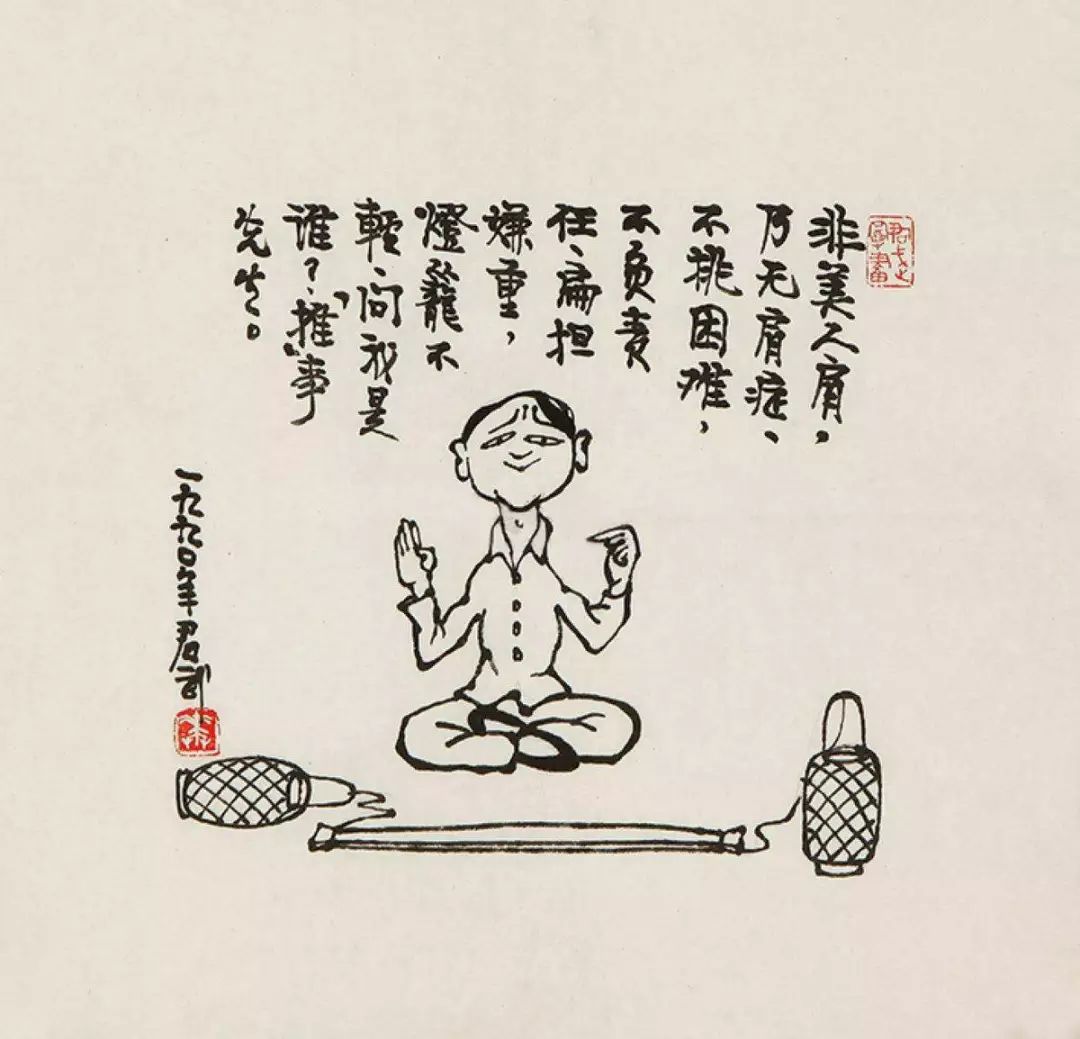 非美人肩，
乃无肩症、
不挑困难，
不负责
任、扁担
嫌重，
燈籠不
輕、问我是
谁？“推”事
先生。
一九九〇年君武